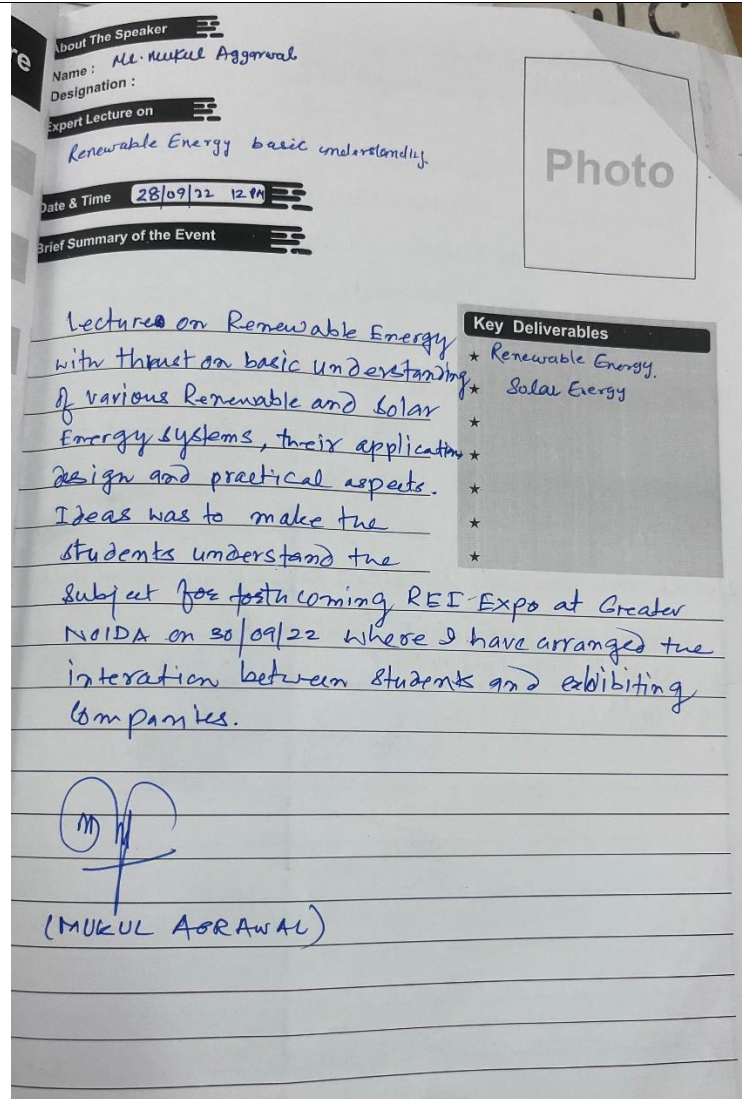 re
About The Speaker
Name : Mr. Mukul Aggarwal
Designation :
Expert Lecture on
Renewable Energy basic understanding.
Photo
Date & Time 28/09/22 12 PM
Brief Summary of the Event
Key Deliverables
★ Renewable Energy.
★ Solar Energy
★
★
★
★
★
Lectures on Renewable Energy
with thrust on basic understanding
of various Renewable and Solar
Energy systems, their application
design and practical aspects.
Ideas was to make the
students understand the
subject for forthcoming REI-Expo at Greater
NOIDA on 30/09/22 where I have arranged the
interation between students and exhibiting
Companies.
(MUKUL AGRAWAL)